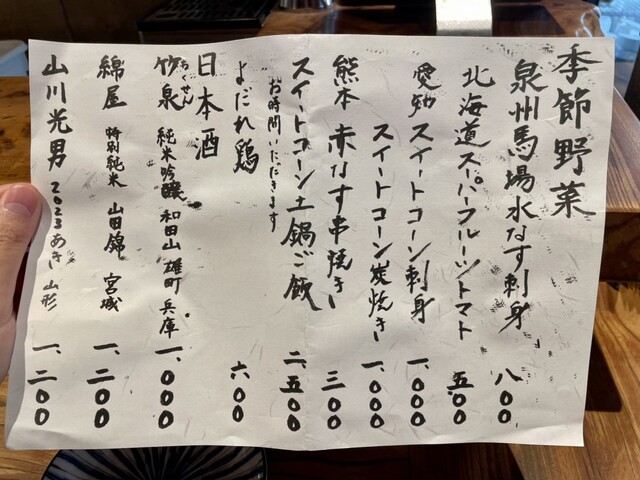 季節野菜
泉州馬場水なす刺身 八〇〇
北海道スーパーフルーツトマト 五〇〇
愛知 スイートコーン刺身 一、〇〇〇
スイートコーン炭焼き 一、〇〇〇
熊本 赤なす串焼き 三〇〇
スイートコーン土鍋ご飯 二、五〇〇
お時間いただきます
よだれ鶏 六〇〇
日本酒
竹泉 純米吟醸 和田山 雄町 兵庫 一、〇〇〇
ちくせん
綿屋 特別純米 山田錦 宮城 一、二〇〇
山川光男 2023あき 山形 一、二〇〇